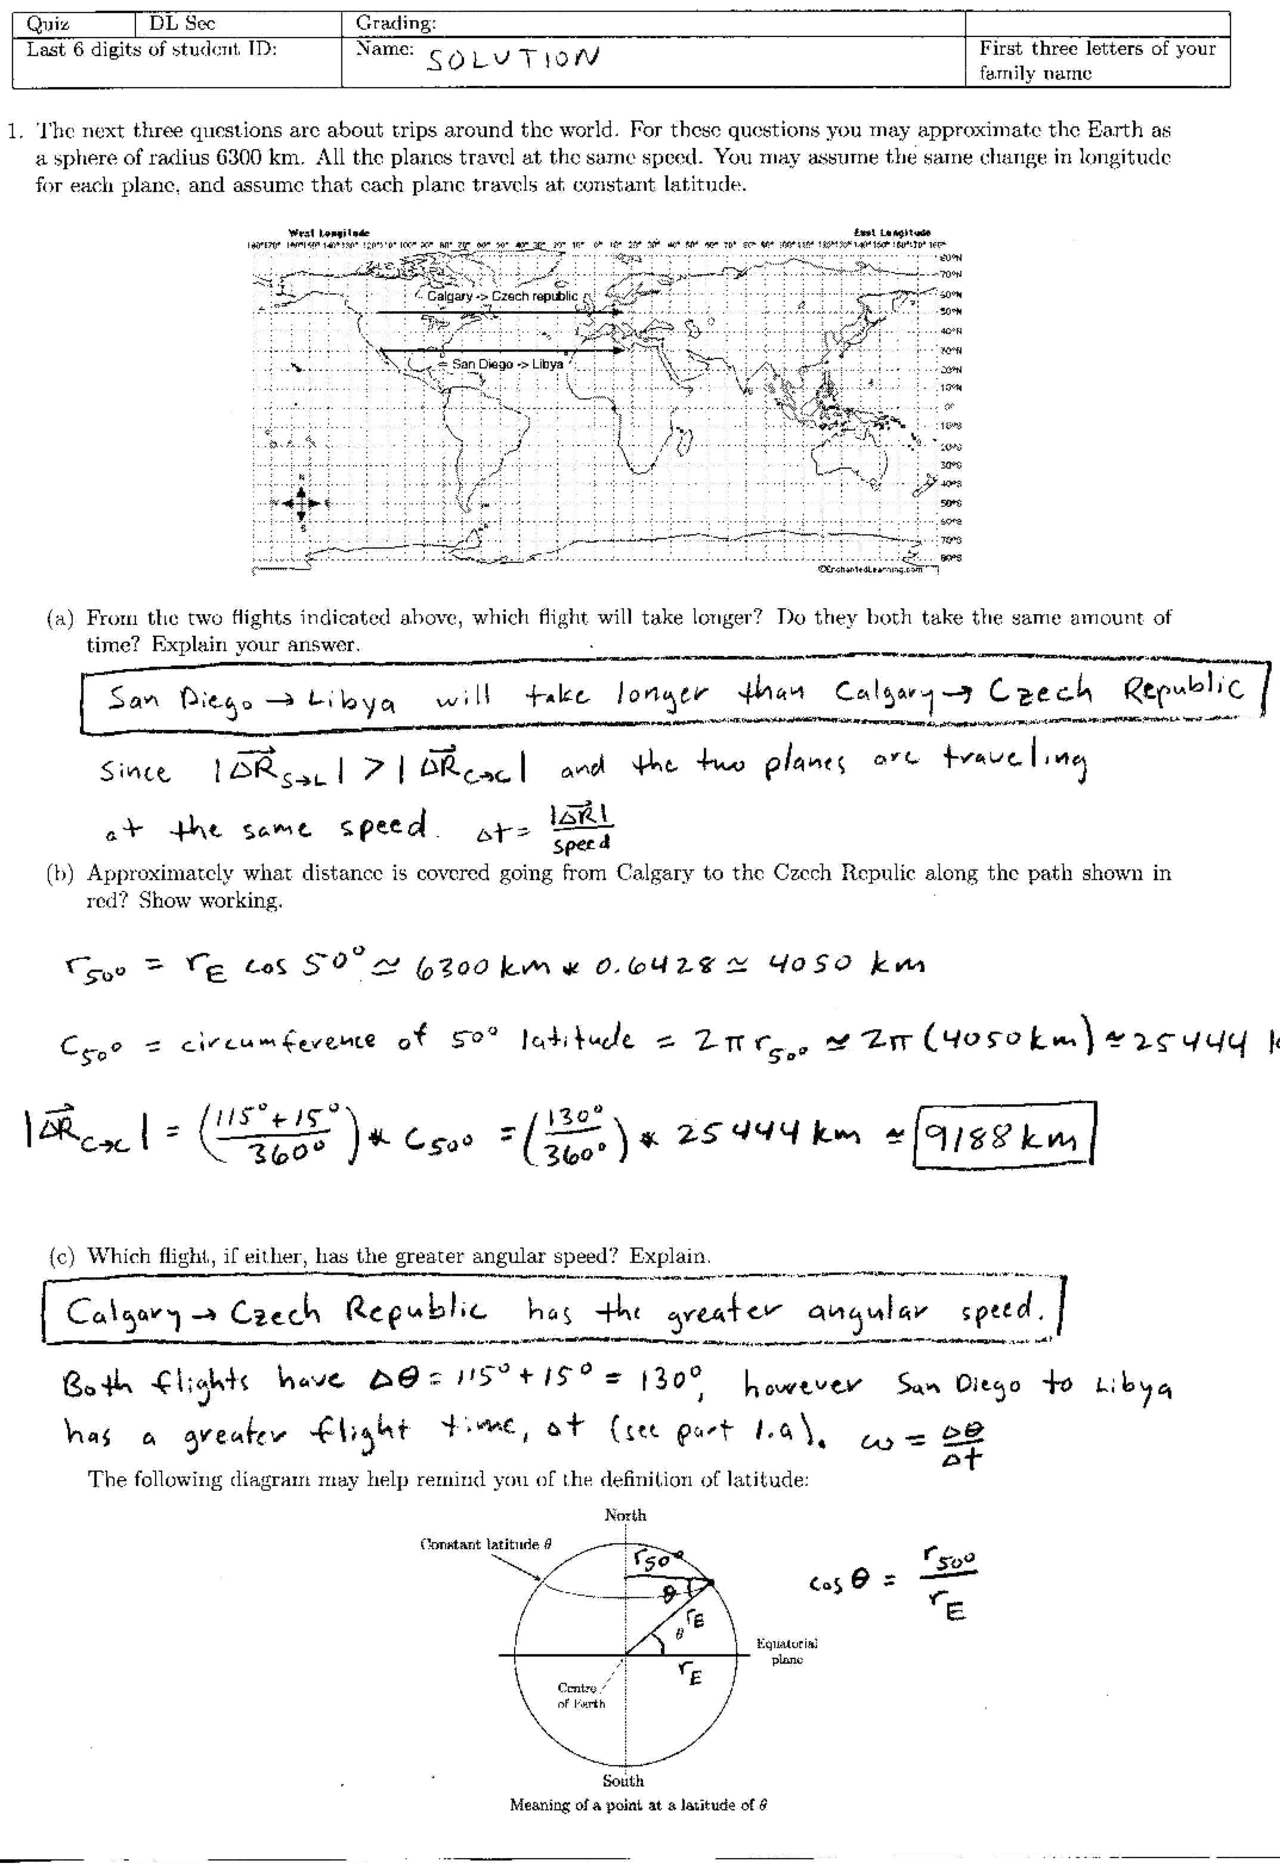 Quiz DL Sec Grading:
Last 6 digits of student ID: Name: SOLUTION First three letters of your
family name
1. The next three questions are about trips around the world. For these questions you may approximate the Earth as
a sphere of radius 6300 km. All the planes travel at the same speed. You may assume the same change in longitude
for each plane, and assume that each plane travels at constant latitude.
West Longitude East Longitude
80°N
70°N
60°N
Calgary -> Czech republic
50°N
40°N
30°N
San Diego -> Libya
20°N
10°N
0°
10°S
20°S
30°S
40°S
50°S
60°S
70°S
80°S
©EnchantedLearning.com
(a) From the two flights indicated above, which flight will take longer? Do they both take the same amount of
time? Explain your answer.
San Diego → Libya will take longer than Calgary → Czech Republic
since |ΔR⃗ S→L| > |ΔR⃗ C→C| and the two planes are traveling
at the same speed. Δt = |ΔR⃗| / speed
(b) Approximately what distance is covered going from Calgary to the Czech Repulic along the path shown in
red? Show working.
r50° = rE cos 50° ≃ 6300 km * 0.6428 ≃ 4050 km
C50° = circumference of 50° latitude = 2π r50° ≃ 2π (4050 km) ≃ 25444 k
|ΔR⃗ C→C| = (115° + 15° / 360°) * C50° = (130° / 360°) * 25444 km ≃ 9188 km
(c) Which flight, if either, has the greater angular speed? Explain.
Calgary → Czech Republic has the greater angular speed.
Both flights have Δθ = 115° + 15° = 130°, however San Diego to Libya
has a greater flight time, Δt (see part 1.a). ω = Δθ / Δt
The following diagram may help remind you of the definition of latitude:
North
Constant latitude θ
r50°
θ
rE
θ
cos θ = r50° / rE
Equatorial
plane
rE
Centre
of Earth
South
Meaning of a point at a latitude of θ